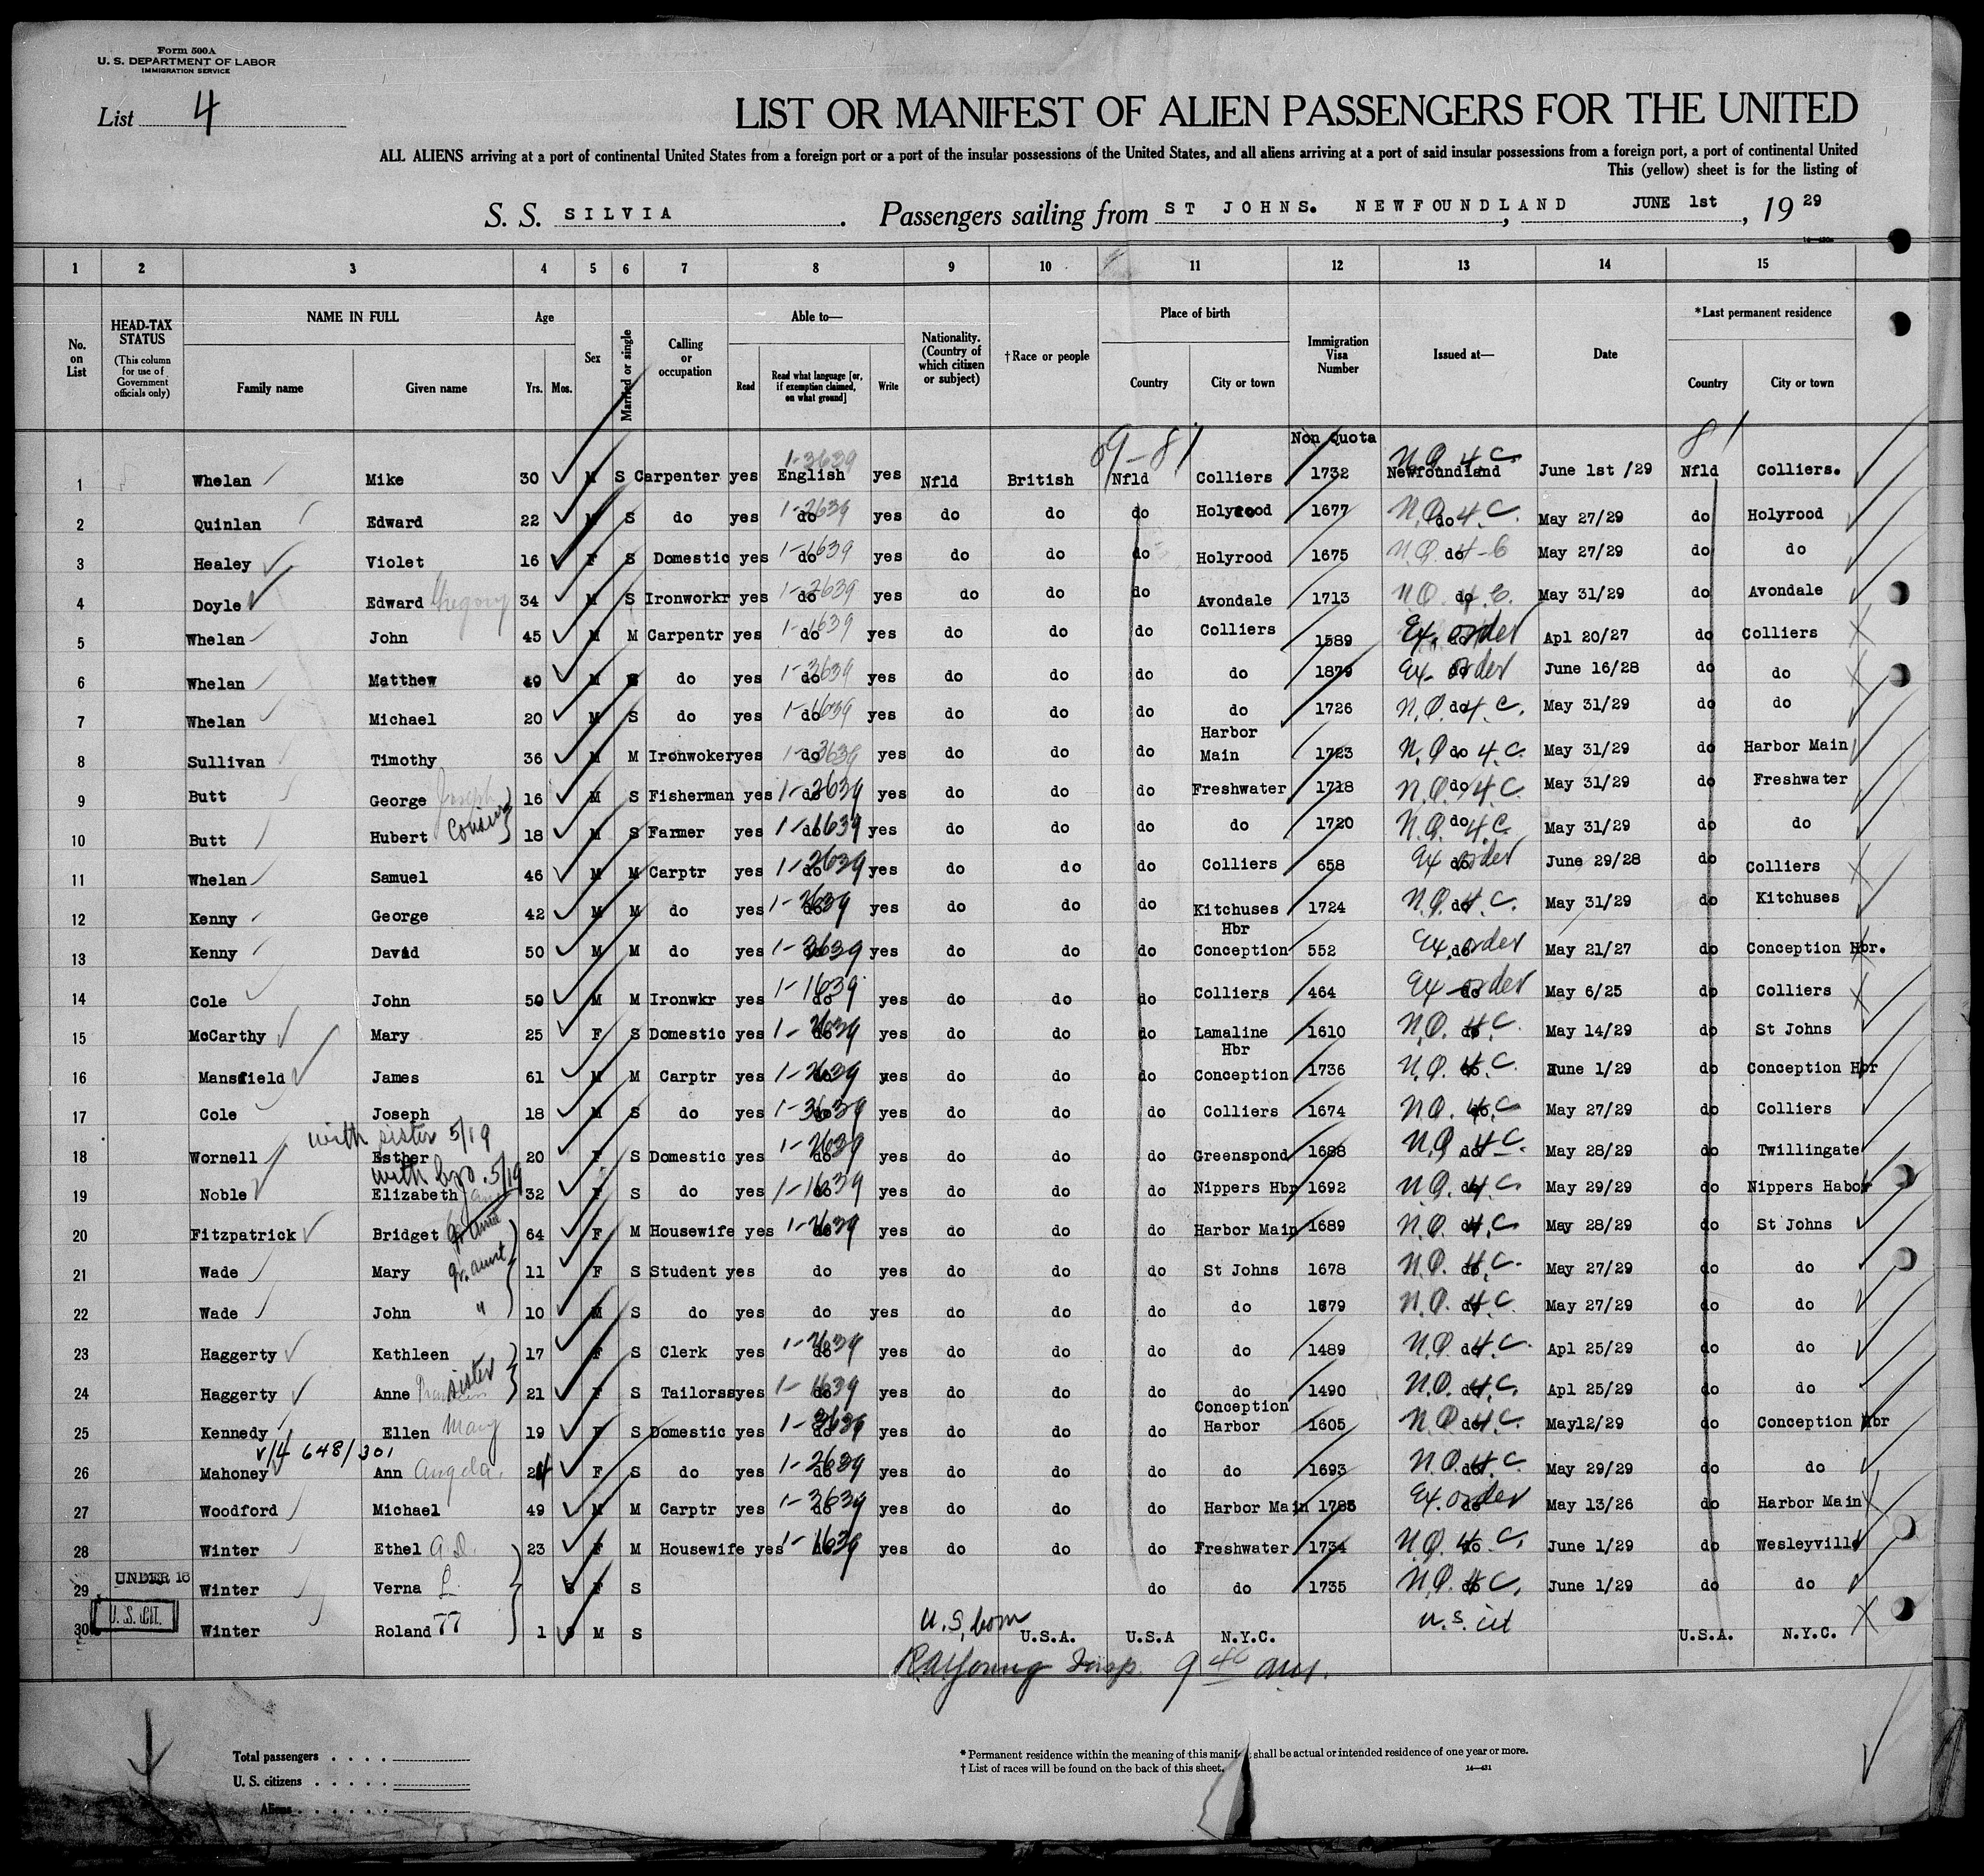 Form 500A
U. S. DEPARTMENT OF LABOR
IMMIGRATION SERVICE
List 4
LIST OR MANIFEST OF ALIEN PASSENGERS FOR THE UNITED
ALL ALIENS arriving at a port of continental United States from a foreign port or a port of the insular possessions of the United States, and all aliens arriving at a port of said insular possessions from a foreign port, a port of continental United
This (yellow) sheet is for the listing of
S. S. SILVIA. Passengers sailing from ST JOHNS. NEWFOUNDLAND, JUNE 1st, 19 29
1 2 3 4 5 6 7 8 9 10 11 12 13 14 15
No. on List
HEAD-TAX STATUS (This column for use of Government officials only)
NAME IN FULL Family name Given name
Age Yrs. Mos.
Sex
Married or single
Calling or occupation
Able to— Read Read what language [or, if exemption claimed, on what ground] Write
Nationality. (Country of which citizen or subject)
†Race or people
Place of birth Country City or town
Immigration Visa Number
Issued at—
Date
*Last permanent residence Country City or town
69-81 Non Quota 81
1 Whelan Mike 30 M S Carpenter yes 1-3639 English yes Nfld British Nfld Colliers 1732 N.Q. 4.C. Newfoundland June 1st /29 Nfld Colliers.
2 Quinlan Edward 22 M S do yes 1-2639 do yes do do do Holyrood 1677 N.Q. do 4.C. May 27/29 do Holyrood
3 Healey Violet 16 F S Domestic yes 1-1639 do yes do do do Holyrood 1675 N.Q. do 4-C May 27/29 do do
4 Doyle Edward Gregory 34 M S Ironworkr yes 1-2639 do yes do do do Avondale 1713 N.Q. do 4.C. May 31/29 do Avondale
5 Whelan John 45 M M Carpentr yes 1-1639 do yes do do do Colliers 1589 Ex. order do Apl 20/27 do Colliers
6 Whelan Matthew 49 M S do yes 1-3639 do yes do do do do 1879 Ex. order do June 16/28 do do
7 Whelan Michael 20 M S do yes 1-1639 do yes do do do do 1726 N.Q. do 4.C. May 31/29 do do
8 Sullivan Timothy 36 M M Ironwoker yes 1-3639 do yes do do do Harbor Main 1723 N.Q. do 4.C. May 31/29 do Harbor Main
9 Butt George Joseph 16 M S Fisherman yes 1-2639 do yes do do do Freshwater 1718 N.Q. do 4.C. May 31/29 do Freshwater
10 Butt Hubert Cousins 18 M S Farmer yes 1-1639 do yes do do do do 1720 N.Q. do 4.C. May 31/29 do do
11 Whelan Samuel 46 M M Carptr yes 1-2639 do yes do do do Colliers 658 Ex order do June 29/28 do Colliers
12 Kenny George 42 M M do yes 1-2639 do yes do do do Kitchuses 1724 N.Q. do 4.C. May 31/29 do Kitchuses
13 Kenny David 50 M M do yes 1-3639 do yes do do do Hbr Conception 552 Ex. order do May 21/27 do Conception Hbr.
14 Cole John 50 M M Ironwkr yes 1-1639 do yes do do do Colliers 464 Ex order do May 6/25 do Colliers
15 McCarthy Mary 25 F S Domestic yes 1-2639 do yes do do do Lamaline 1610 N.Q. do 4.C. May 14/29 do St Johns
16 Mansfield James 61 M M Carptr yes 1-2639 do yes do do do Hbr Conception 1736 N.Q. do 4.C. June 1/29 do Conception Hbr
17 Cole Joseph 18 M S do yes 1-3639 do yes do do do Colliers 1674 N.Q. do 4.C May 27/29 do Colliers
with sister 5/19
18 Wornell Esther 20 F S Domestic yes 1-2639 do yes do do do Greenspond 1688 N.Q. do 4.C. May 28/29 do Twillingate
with bro. 5/19
19 Noble Elizabeth 32 F S do yes 1-1639 do yes do do do Nippers Hbr 1692 N.Q. do 4.C May 29/29 do Nippers Habor
20 Fitzpatrick Bridget 64 F M Housewife yes 1-2639 do yes do do do Harbor Main 1689 N.Q. do 4.C May 28/29 do St Johns
21 Wade Mary gr. aunt 11 F S Student yes do yes do do do St Johns 1678 N.Q. do 4.C. May 27/29 do do
22 Wade John " 10 M S do yes do yes do do do do 1679 N.Q. do 4.C. May 27/29 do do
23 Haggerty Kathleen 17 F S Clerk yes 1-2639 do yes do do do do 1489 N.Q. do 4.C. Apl 25/29 do do
24 Haggerty Anne sister 21 F S Tailorss yes 1-1639 do yes do do do do 1490 N.Q. do 4.C. Apl 25/29 do do
25 Kennedy Ellen Mary 19 F S Domestic yes 1-3639 do yes do do do Conception Harbor 1605 N.Q. do 4.C. May12/29 do Conception Hbr
v/4 648/301
26 Mahoney Ann Angela. 24 F S do yes 1-2639 do yes do do do do 1693 N.Q. do 4.C. May 29/29 do do
27 Woodford Michael 49 M M Carptr yes 1-3639 do yes do do do Harbor Main 1785 Ex. order do May 13/26 do Harbor Main
28 Winter Ethel A.D. 23 F M Housewife yes 1-1639 do yes do do do Freshwater 1734 N.Q. do 4.C. June 1/29 do Wesleyville
29 UNDER 16 Winter Verna L. F S do do 1735 N.Q. do 4.C. June 1/29 do do
30 U. S. CIT. Winter Roland 77 1 M S U.S. born U.S.A. U.S.A N.Y.C. U.S. cit U.S.A. N.Y.C.
Insp. 9 40 am.
Total passengers . . . .
U. S. citizens . . . . .
Aliens . . . . . .
* Permanent residence within the meaning of this manifest shall be actual or intended residence of one year or more.
† List of races will be found on the back of this sheet.
14—431